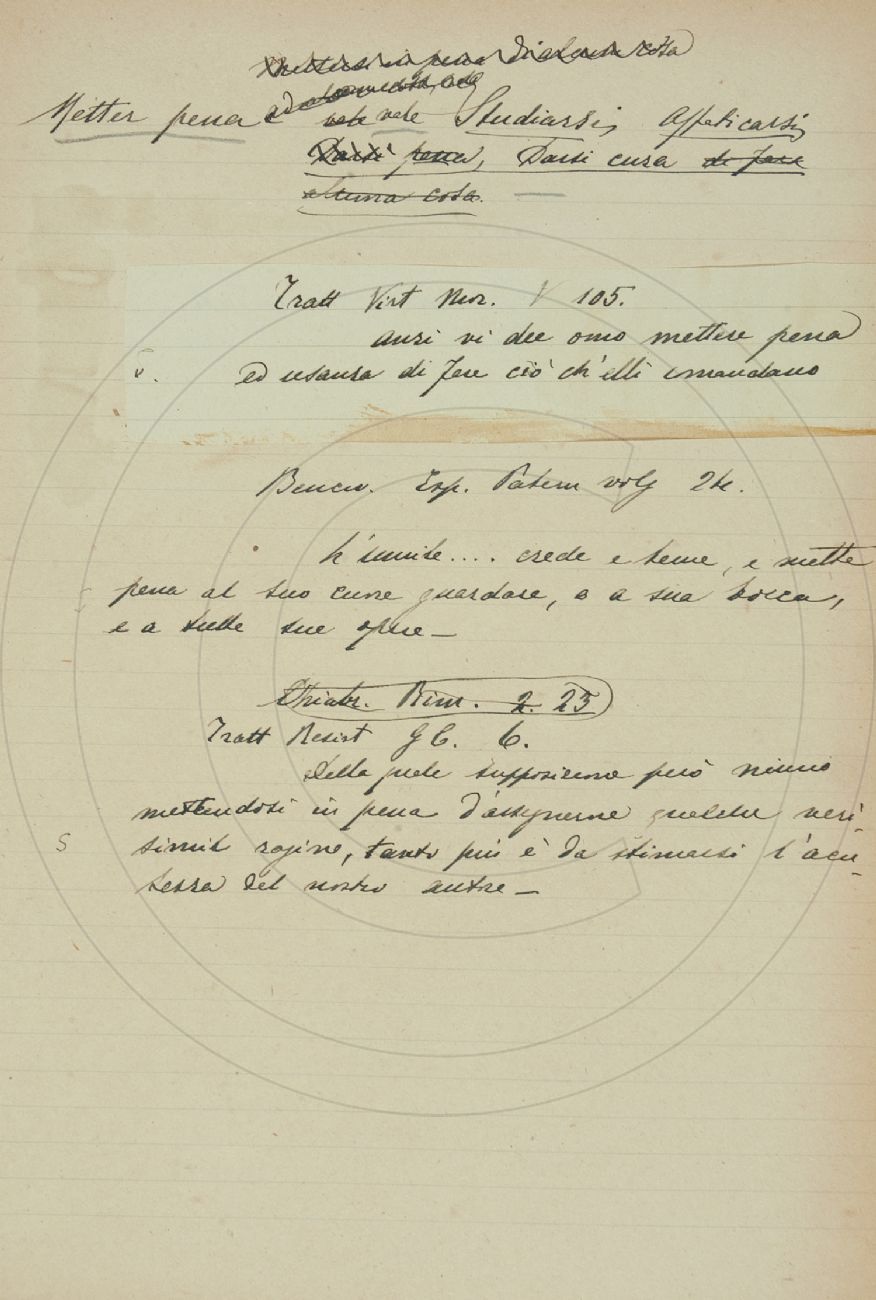 mettersi in pena di alcuna cosa
Metter pena vale vale Studiarsi, Affaticarsi,
Darsi pena, Darsi cura di fare
alcuna cosa.
Tratt Virt Mor. 105.
anzi vi dee omo mettere pena
ed usanza di fare ciò ch'elli comandano
Benciv. Esp. Patern volg 24.
L'umile.... crede e teme, e mette
pena al suo cuore guardare, e a sua bocca,
e a tutte sue opere —
Chiabr. Rim. 2. 23
Tratt Resist GG. 6.
Della quale supposizione però niuno
mettendosi in pena d'assegnarne qualche veri-
S simile ragione, tanto più è da stimarsi l'acu-
tezza del nostro autore —